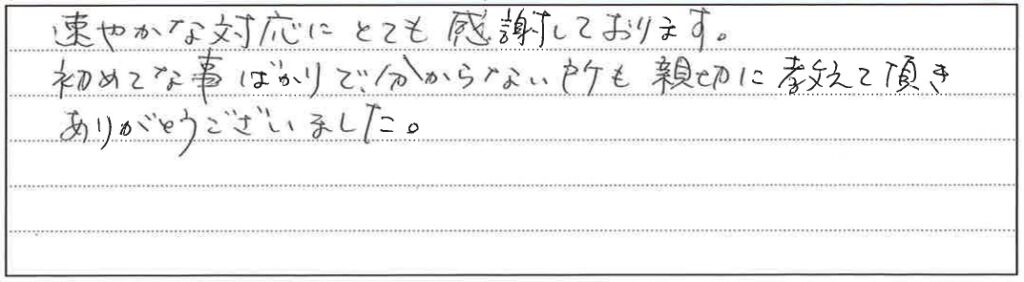 速やかな対応にとても感謝しております。
初めてな事ばかりで、分からない所も親切に教えて頂き
ありがとうございました。